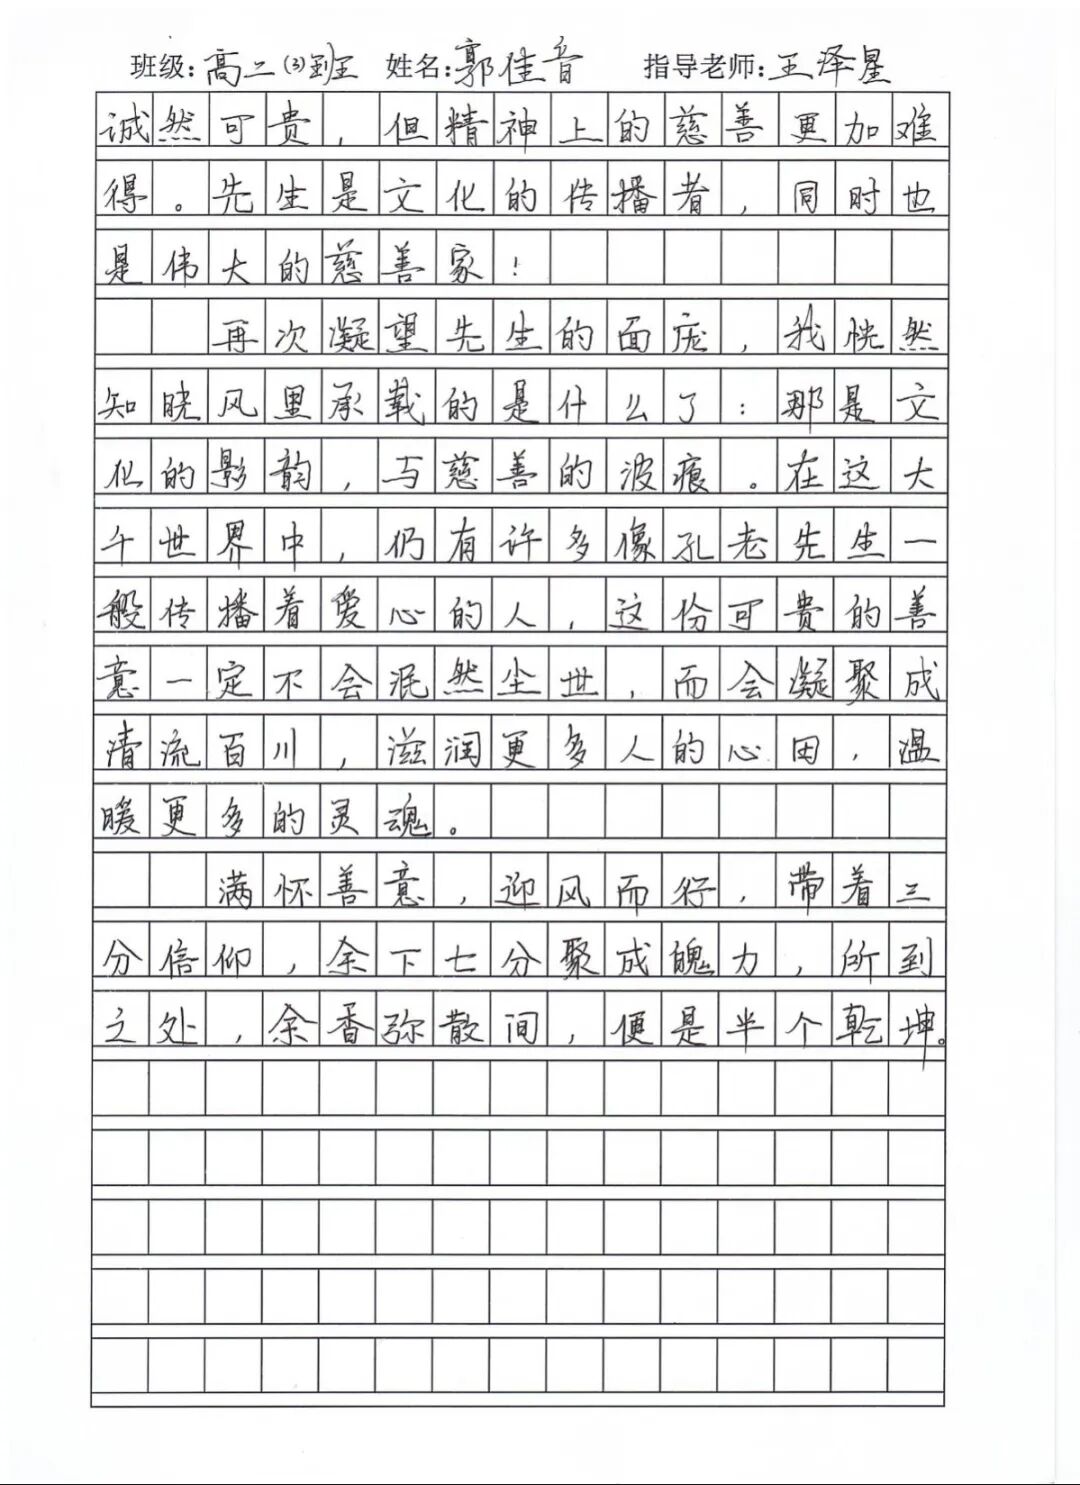 班级:高二(3)班 姓名:郭佳音 指导老师:王泽星
诚然可贵，但精神上的慈善更加难
得。先生是文化的传播者，同时也
是伟大的慈善家！
再次凝望先生的面庞，我恍然
知晓风里承载的是什么了：那是文
化的影韵，与慈善的波痕。在这大
千世界中，仍有许多像孔老先生一
般传播着爱心的人，这份可贵的善
意一定不会泯然尘世，而会凝聚成
清流百川，滋润更多人的心田，温
暖更多的灵魂。
满怀善意，迎风而行，带着三
分信仰，余下七分聚成魄力，所到
之处，余香弥散间，便是半个乾坤。